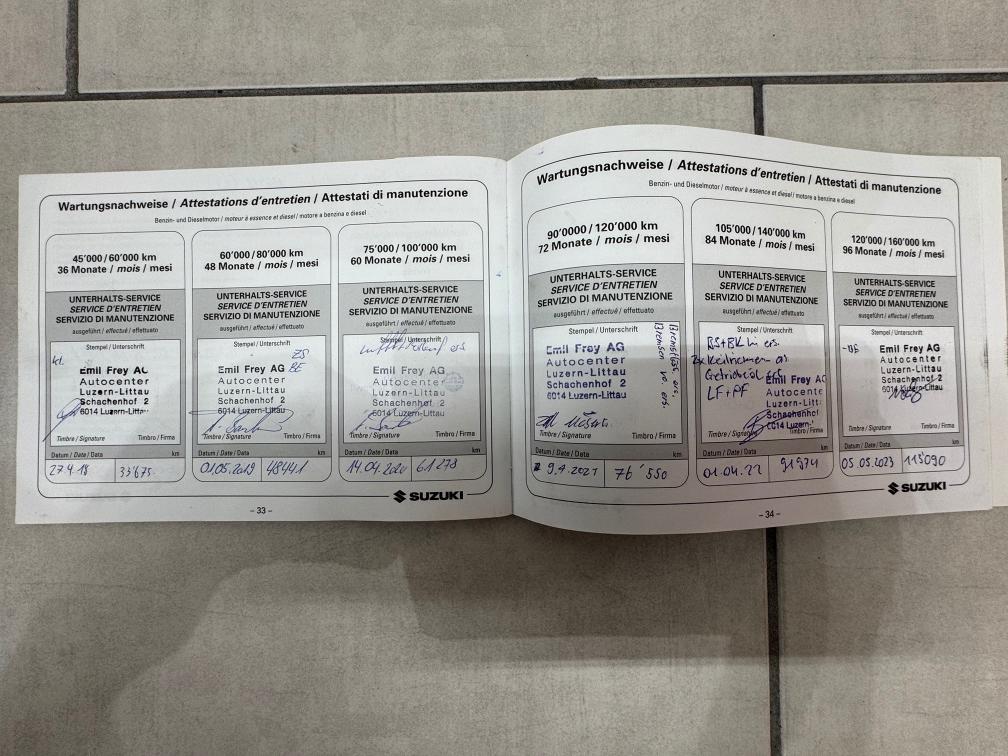 Wartungsnachweise / Attestations d'entretien / Attestati di manutenzione
Benzin- und Dieselmotor / moteur à essence et diesel / motore a benzina e diesel
45'000/60'000 km
36 Monate / mois / mesi
UNTERHALTS-SERVICE
SERVICE D'ENTRETIEN
SERVIZIO DI MANUTENZIONE
ausgeführt / effectué / effettuato
Stempel / Unterschrift
Emil Frey AG
Autocenter
Luzern-Littau
Schachenhof 2
6014 Luzern-Littau
Timbre / Signature Timbro / Firma
Datum / Date / Data km
27.4.18 33'675
60'000/80'000 km
48 Monate / mois / mesi
UNTERHALTS-SERVICE
SERVICE D'ENTRETIEN
SERVIZIO DI MANUTENZIONE
ausgeführt / effectué / effettuato
Stempel / Unterschrift
BE
Emil Frey AG
Autocenter
Luzern-Littau
Schachenhof 2
6014 Luzern-Littau
Timbre / Signature Timbro / Firma
Datum / Date / Data km
01.05.2019 48441
75'000/100'000 km
60 Monate / mois / mesi
UNTERHALTS-SERVICE
SERVICE D'ENTRETIEN
SERVIZIO DI MANUTENZIONE
ausgeführt / effectué / effettuato
Stempel / Unterschrift
Emil Frey AG
Autocenter
Luzern-Littau
Schachenhof 2
6014 Luzern-Littau
Timbre / Signature Timbro / Firma
Datum / Date / Data km
14.04.2020 61278
SUZUKI
– 33 –
Wartungsnachweise / Attestations d'entretien / Attestati di manutenzione
Benzin- und Dieselmotor / moteur à essence et diesel / motore a benzina e diesel
90'0000/120'000 km
72 Monate / mois / mesi
UNTERHALTS-SERVICE
SERVICE D'ENTRETIEN
SERVIZIO DI MANUTENZIONE
ausgeführt / effectué / effettuato
Stempel / Unterschrift
Bremsflüss. ers.
Bremsen vo. ers.
Emil Frey AG
Autocenter
Luzern-Littau
Schachenhof 2
6014 Luzern-Littau
Timbre / Signature Timbro / Firma
Datum / Date / Data km
9.4.2021 76'550
105'000/140'000 km
84 Monate / mois / mesi
UNTERHALTS-SERVICE
SERVICE D'ENTRETIEN
SERVIZIO DI MANUTENZIONE
ausgeführt / effectué / effettuato
Stempel / Unterschrift
BS+BK hi ers.
Keilriemen ers
Getriebeöl ers
LF+PF
Emil Frey AG
Autocenter
Luzern-Litt
Schachenhof
6014 Luzern-
Timbre / Signature Timbro / Firma
Datum / Date / Data km
01.04.22 91974
120'000/160'000 km
96 Monate / mois / mesi
UNTERHALTS-SERVICE
SERVICE D'ENTRETIEN
SERVIZIO DI MANUTENZIONE
ausgeführt / effectué / effettuato
Stempel / Unterschrift
Emil Frey AG
Autocenter
Luzern-Littau
Schachenhof 2
6014 Luzern-Littau
Timbre / Signature Timbro / Firma
Datum / Date / Data km
05.05.2023 113090
SUZUKI
– 34 –